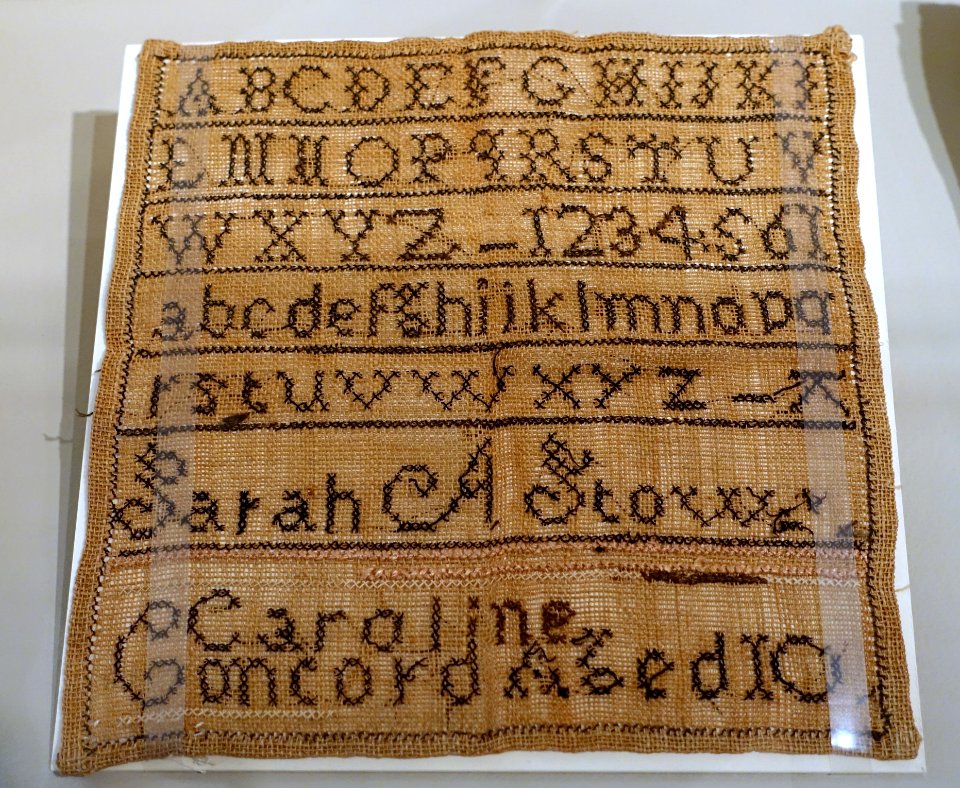 A B C D E F G H I J K I
L M N O P Q R S T U V
W X Y Z – 1 2 3 4 5 6
a b c d e f g h i j k l m n o p q
r s t u v w x y z –
Sarah A Stow
Caroline
Concord Aged 10